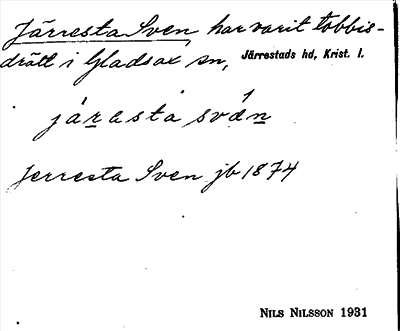 Järresta Sven, har varit tobbis-
drätt i Gladsax sn, Järrestads hd, Krist. l.
járasta svǽn
Jerresta Sven jb 1874
NILS NILSSON 1931